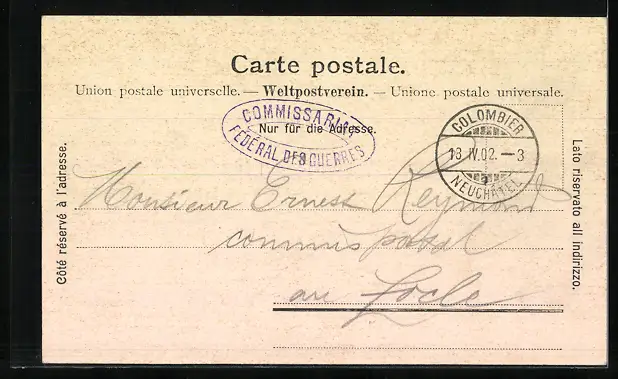 Carte postale.
Union postale universelle. — Weltpostverein. — Unione postale universale.
COMMISSARIAT
FÉDÉRAL DES GUERRES
Nur für die Adresse.
COLOMBIER
13 IV.02. — 3
NEUCHÂTEL
Côté réservé à l'adresse.
Lato riservato all indirizzo.
Monsieur Ernest Reymond
commis postal
au Locle